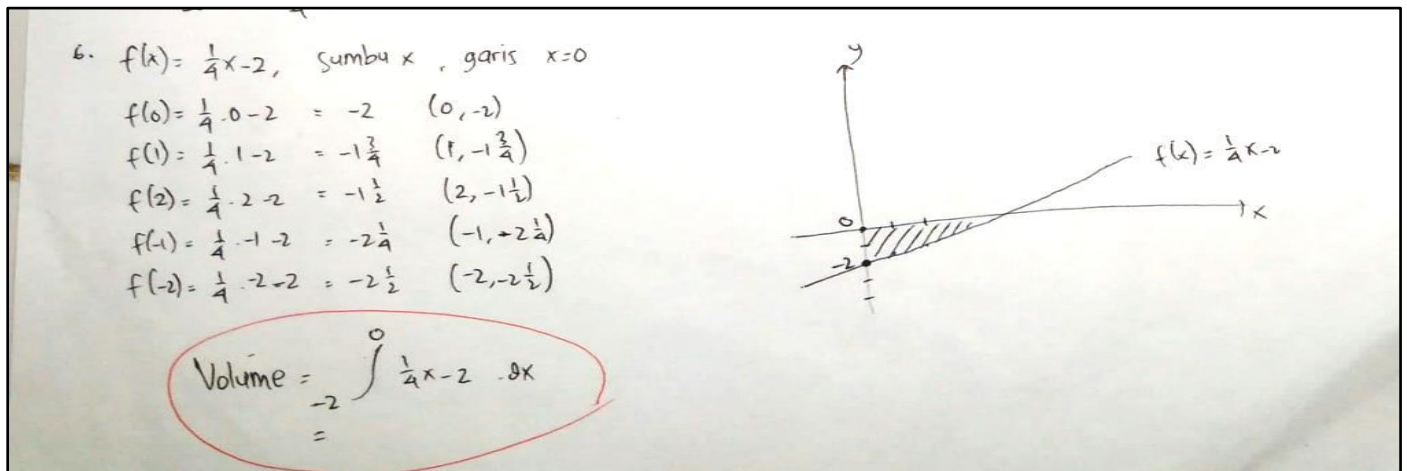 6. f(x) = 1/4 x - 2, sumbu x, garis x=0
f(0) = 1/4 . 0 - 2 = -2 (0, -2)
f(1) = 1/4 . 1 - 2 = -1 3/4 (1, -1 3/4)
f(2) = 1/4 . 2 - 2 = -1 1/2 (2, -1 1/2)
f(-1) = 1/4 . -1 - 2 = -2 1/4 (-1, -2 1/4)
f(-2) = 1/4 . -2 - 2 = -2 1/2 (-2, -2 1/2)
Volume = -2 ∫ 0 1/4 x - 2 . dx
=
y
f(x) = 1/4 x - 2
0
x
-2